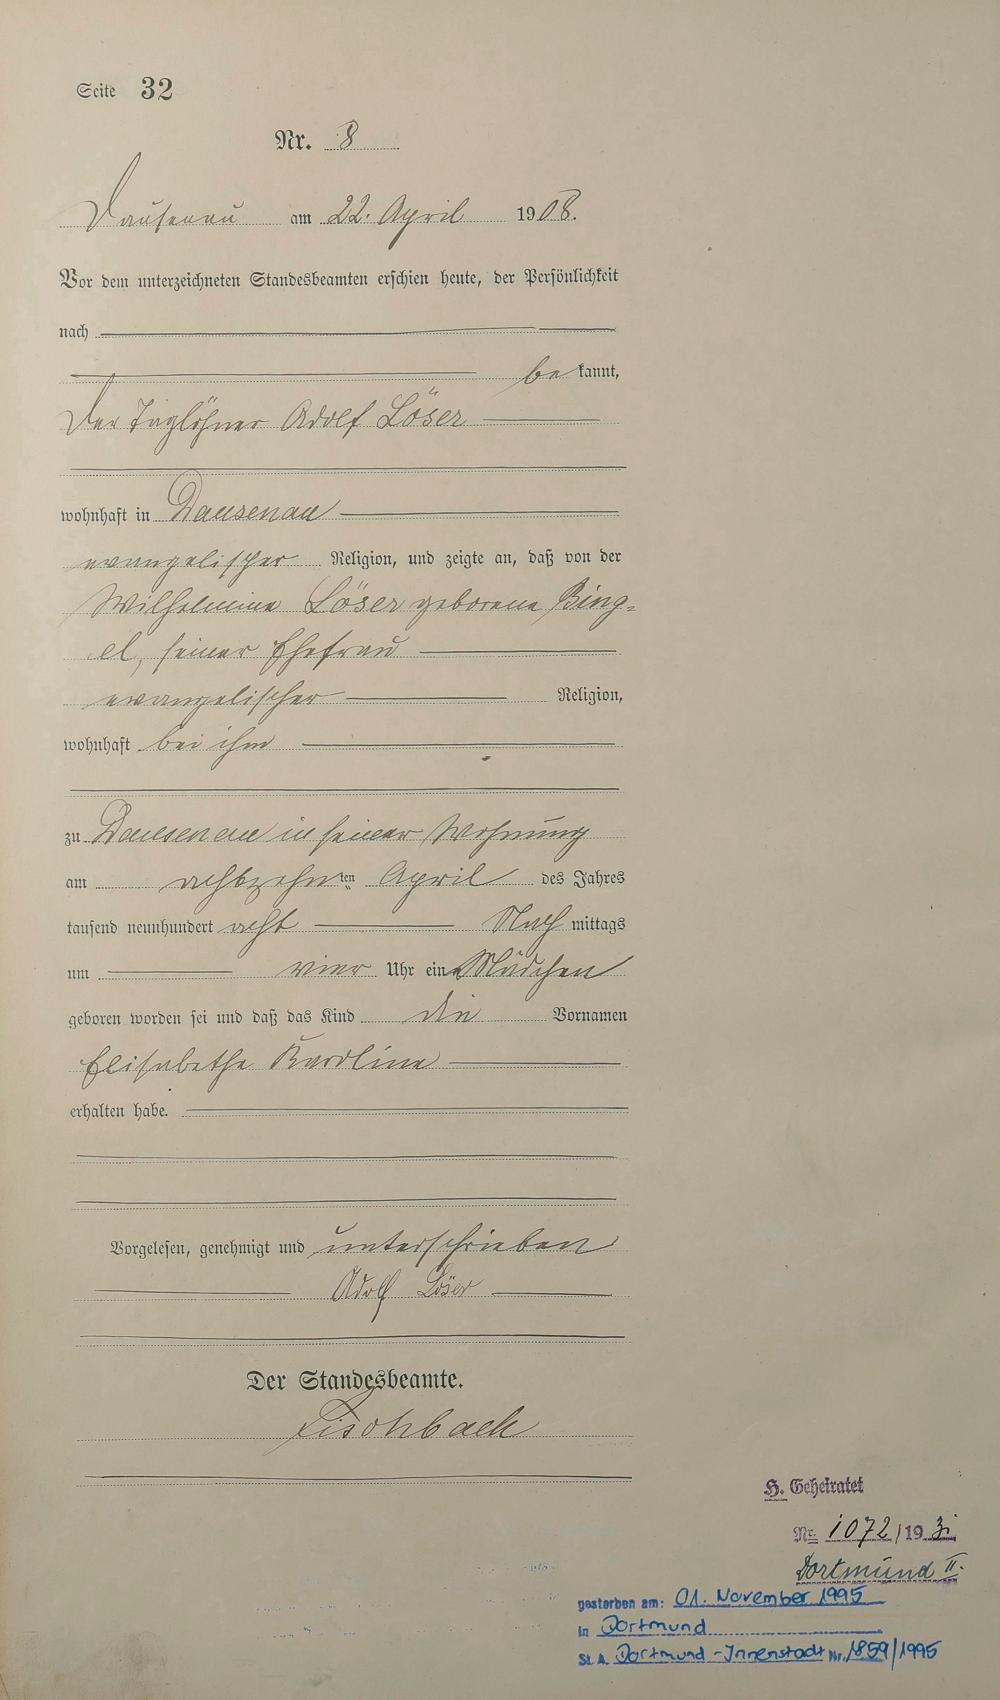 Seite 32
Nr. 8
Dausenau am 22. April 1908.
Vor dem unterzeichneten Standesbeamten erschien heute, der Persönlichkeit
nach
be kannt,
der Taglöhner Adolf Löser
wohnhaft in Dausenau
evangelischer Religion, und zeigte an, daß von der
Wilhelmine Löser geborene Bing-
el, seiner Ehefrau
evangelischer Religion,
wohnhaft bei ihm
zu Dausenau in seiner Wohnung
am achtzehnten April des Jahres
tausend neunhundert acht Nach mittags
um vier Uhr ein Mädchen
geboren worden sei und daß das Kind die Vornamen
Elisabethe Karoline
erhalten habe.
Vorgelesen, genehmigt und unterschrieben
Adolf Löser
Der Standesbeamte.
Fischbach
H. Geheiratet
Nr. 1072/1931
Dortmund II.
gestorben am: 01. November 1995
in Dortmund
St. A. Dortmund-Innenstadt Nr. 1859/1995